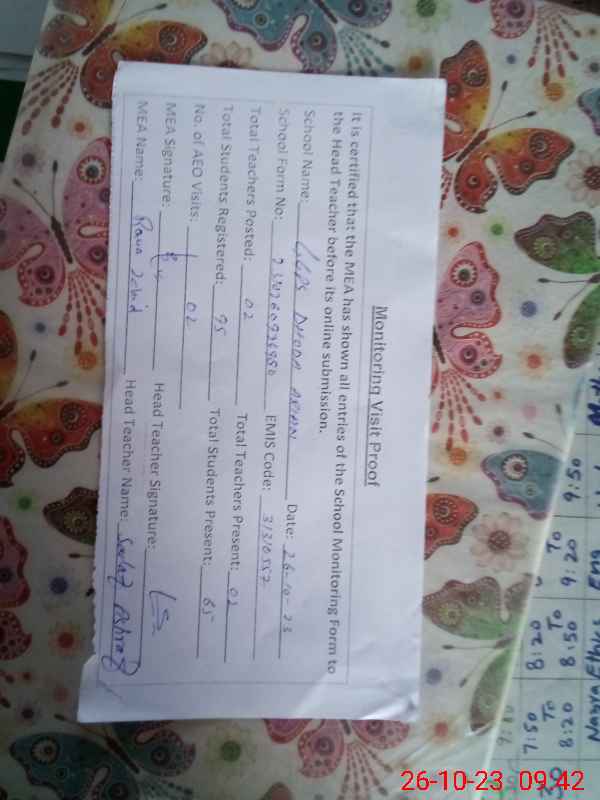 Monitoring Visit Proof
It is certified that the MEA has shown all entries of the School Monitoring Form to
the Head Teacher before its online submission.
School Name: GGPS DHODA Date: 26-10-23
School Form No: EMIS Code: 31310557
Total Teachers Posted: 02 Total Teachers Present: 02
Total Students Registered: 95 Total Students Present: 65
No. of AEO Visits: 02
MEA Signature: Head Teacher Signature:
MEA Name: Rana Head Teacher Name: Ashraf
7:50 To 8:20
8:20 To 8:50
9:20 To 9:50
Nazra Ethics Eng
26-10-23 09:42